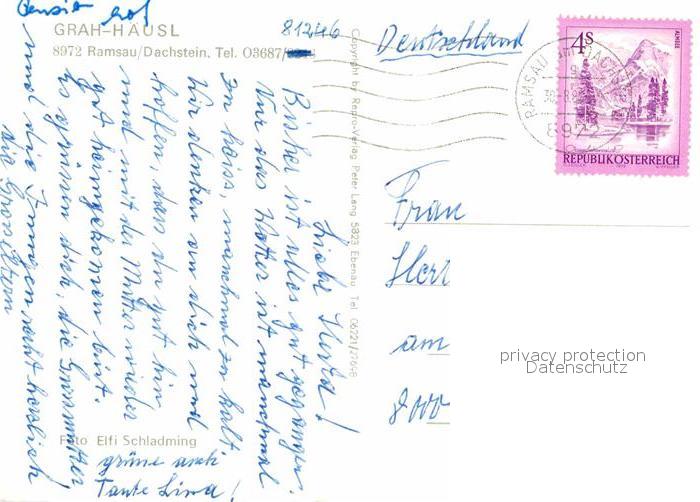 Pension
GRAH-HÄUSL
81246
8972 Ramsau/Dachstein, Tel. 03687/
Copyright by Repro-Verlag Peter Lang 5823 Ebenau Tel. 06221/27648
Foto Elfi Schladming
Liebe Herta!
Bisher ist alles gut gegangen.
Nur das Wetter ist manchmal
zu heiss, manchmal zu kalt.
Wir denken an dich und
hoffen, dass du gut hin
und mit der Mutter wieder
gut heimgekommen bist.
Es grüssen dich, die Grossmutter
und die Jungen recht herzlich
die Grosseltern
grüne auch
Tante Lina!
Deutschland
4S
ALMSEE
RAMSAU AM DACHSTEIN
8972
REPUBLIK ÖSTERREICH
Frau
Hert
am
8000
privacy protection
Datenschutz